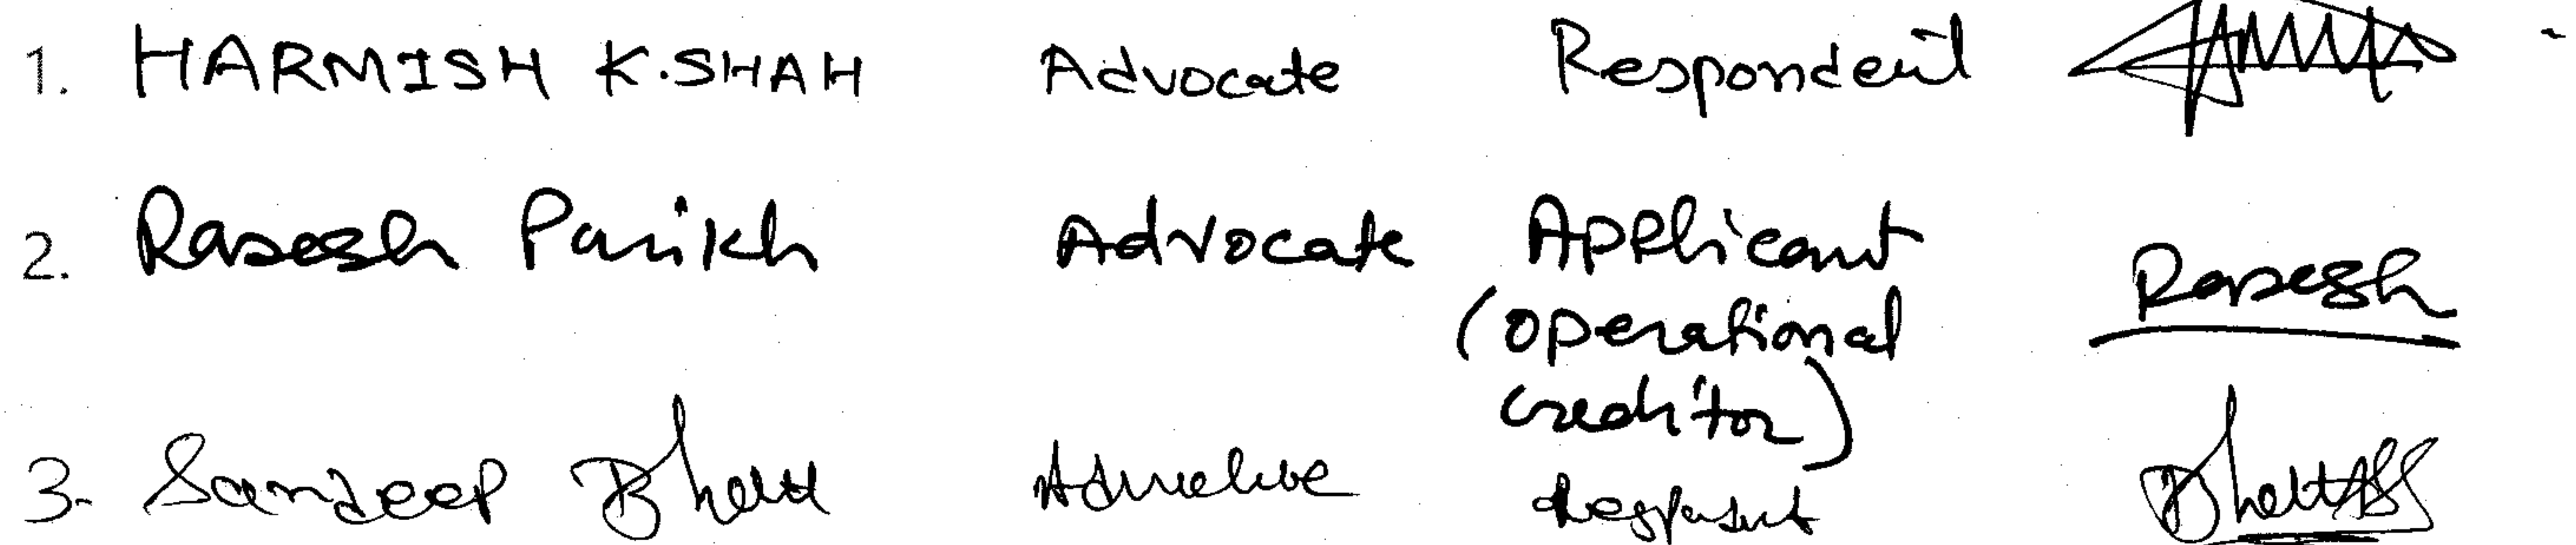 1. HARMISH K. SHAH Advocate Respondent
2. Rasesh Parikh Advocate Applicant Rasesh
(operational
creditor)
3. Sandeep Bhatt Advocate Respondent Bhatt